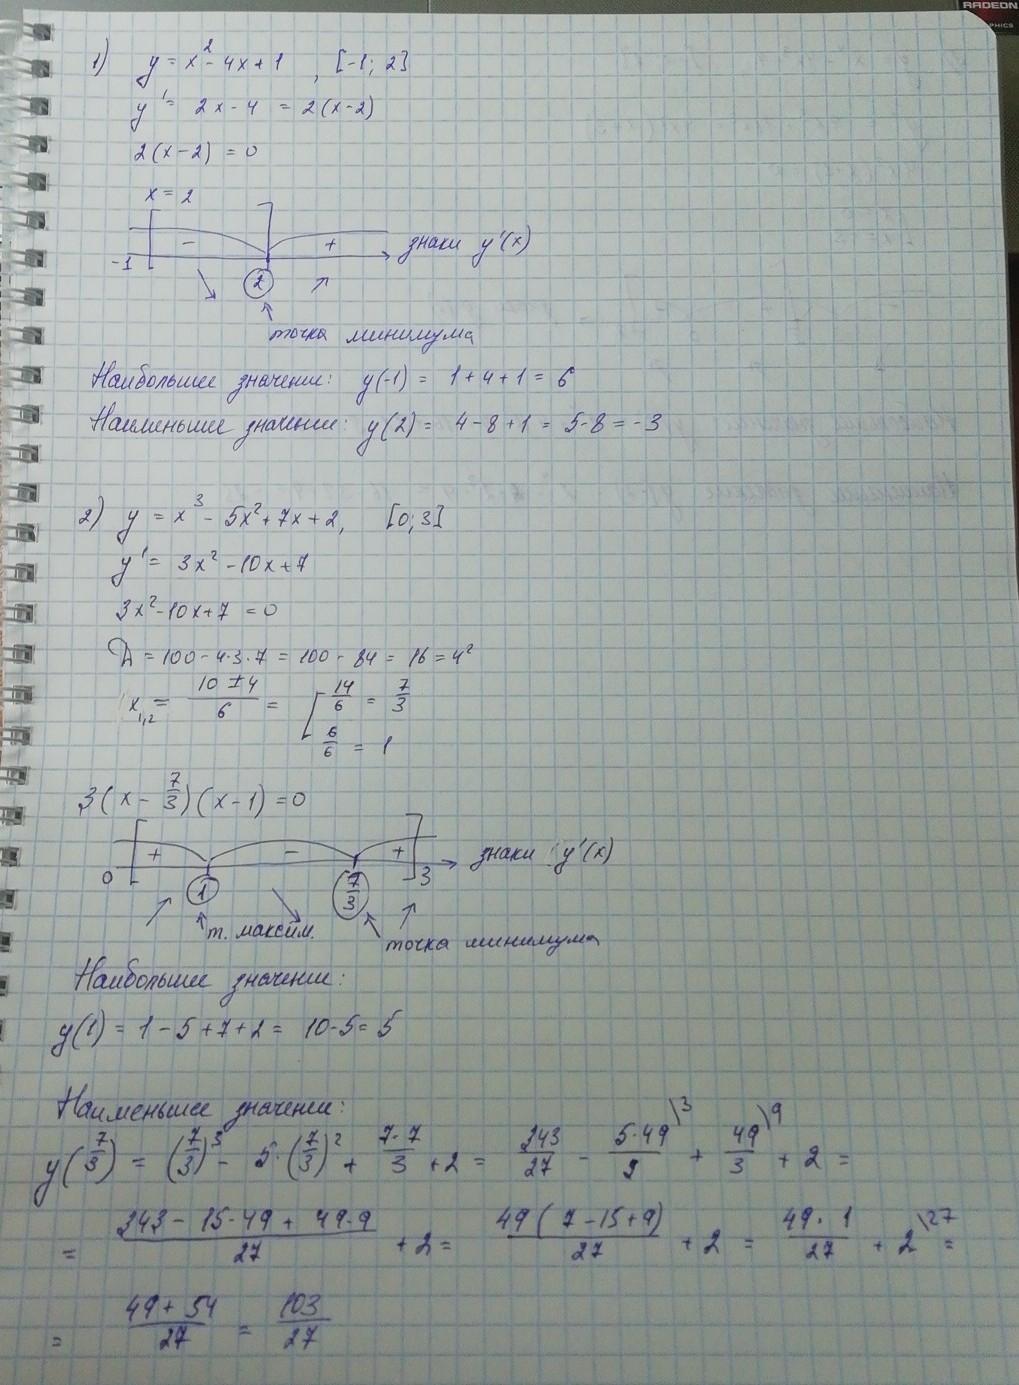 RADEON
GRAPHICS
1) y = x² - 4x + 1 , [-1; 2]
y' = 2x - 4 = 2(x-2)
2(x-2) = 0
x = 2
- + знаки y'(x)
-1 2
точка минимума
Наибольшее значение: y(-1) = 1+4+1 = 6
Наименьшее значение: y(2) = 4-8+1 = 5-8 = -3
2) y = x³ - 5x² + 7x + 2, [0; 3]
y' = 3x² - 10x + 7
3x² - 10x + 7 = 0
D = 100 - 4·3·7 = 100 - 84 = 16 = 4²
x₁,₂ = (10 ± 4)/6 = [ 14/6 = 7/3
6/6 = 1
3(x - 7/3)(x-1) = 0
+ - + знаки y'(x)
0 1 7/3 3
т. максим. точка минимума
Наибольшее значение:
y(1) = 1 - 5 + 7 + 2 = 10-5 = 5
Наименьшее значение:
y(7/3) = (7/3)³ - 5·(7/3)² + 7·7/3 + 2 = 343/27 - 5·49/9 \3 + 49/3 \9 + 2 =
= (343 - 15·49 + 49·9)/27 + 2 = 49(7-15+9)/27 + 2 = 49·1/27 + 2 \27 =
= (49+54)/27 = 103/27